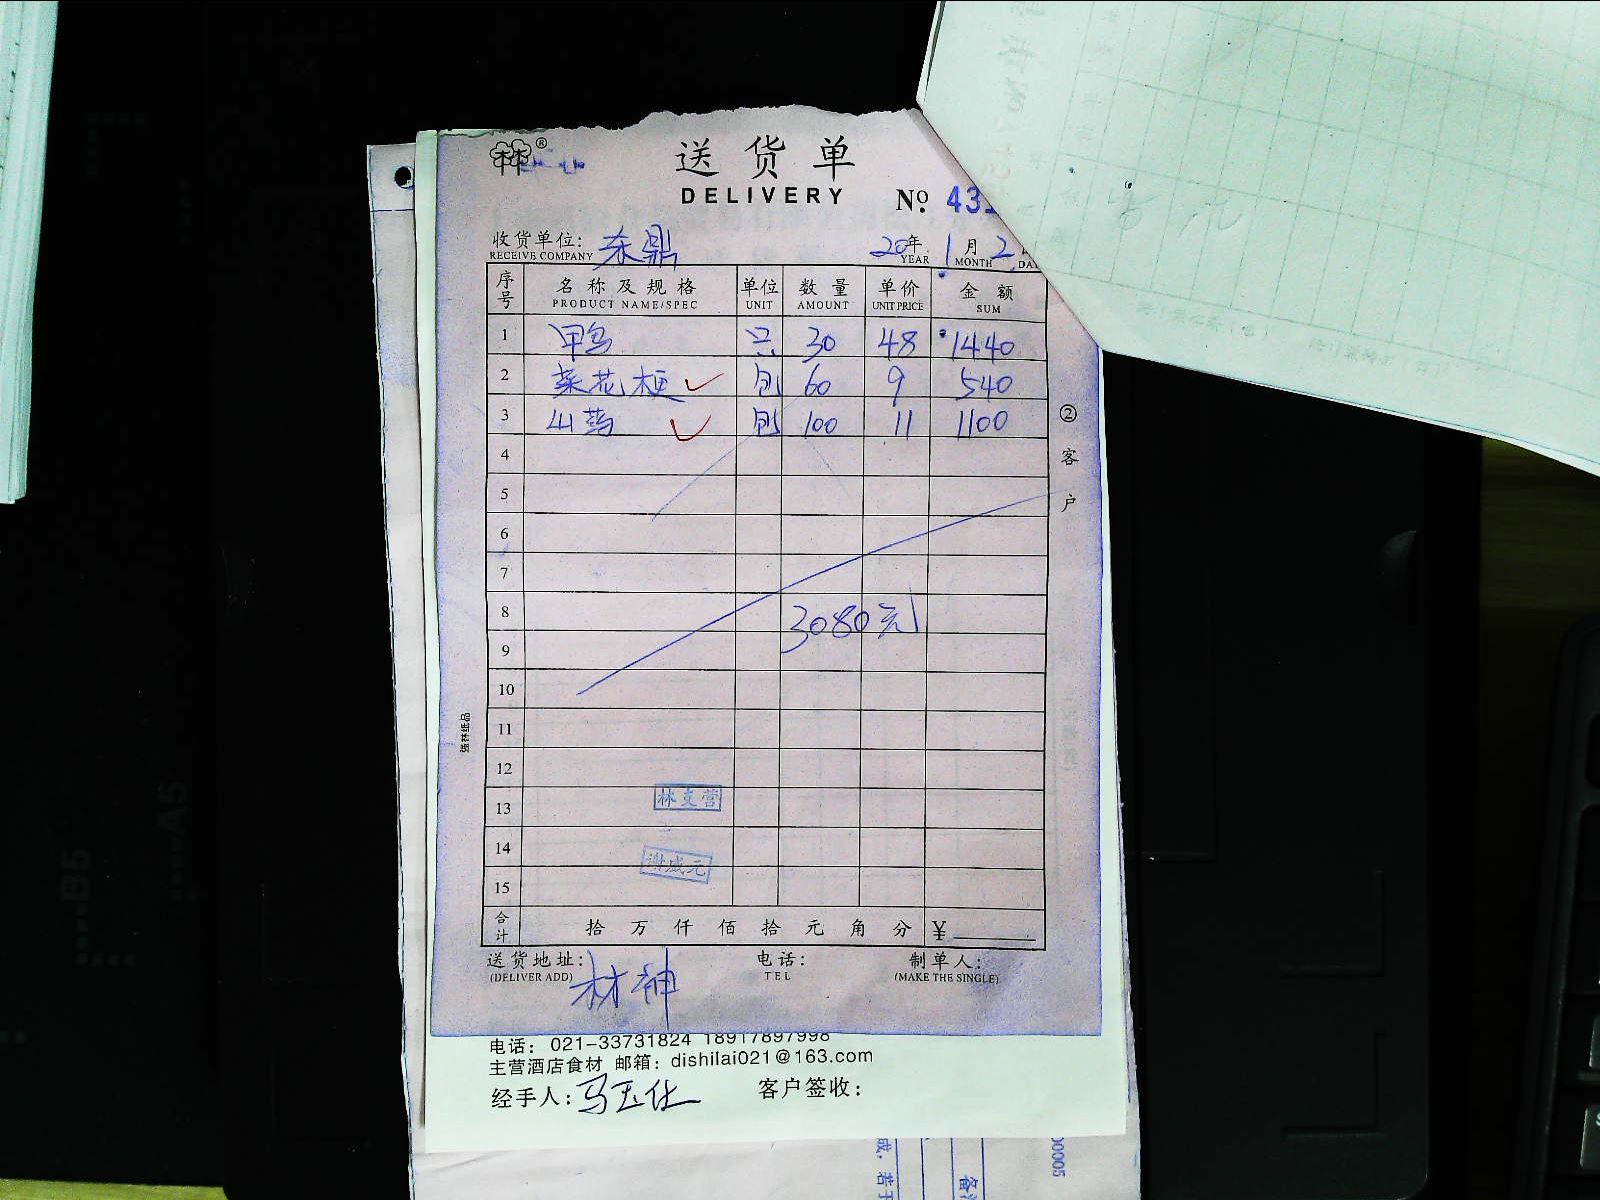 林®
送货单
DELIVERY
№: 431
收货单位: 东鼎 20年 1月 2
RECEIVE COMPANY YEAR MONTH DA
序号 名称及规格 单位 数量 单价 金额
PRODUCT NAME/SPEC UNIT AMOUNT UNIT PRICE SUM
1 甲鸟 只 30 48 1440
2 菜花梗 包 60 9 540
3 山药 包 100 11 1100
4
5
6
7
8 3080元
9
10
11
12
13 林支营
14 谢咸元
15
合计 拾 万 仟 佰 拾 元 角 分 ¥
②客户
强林纸品
送货地址: 林神 电话: 制单人:
(DELIVER ADD) TEL (MAKE THE SINGLE)
电话: 021-33731824 18917897998
主营酒店食材 邮箱: dishilai021@163.com
经手人: 马玉仕 客户签收:
00005
B5
A5